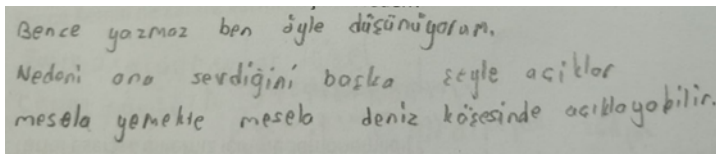 Bence yazmaz ben öyle düşünüyorum.
Nedeni ona sevdiğini başka şeyle açiklar
mesela yemekte mesela deniz köşesinde açıklayabilir.